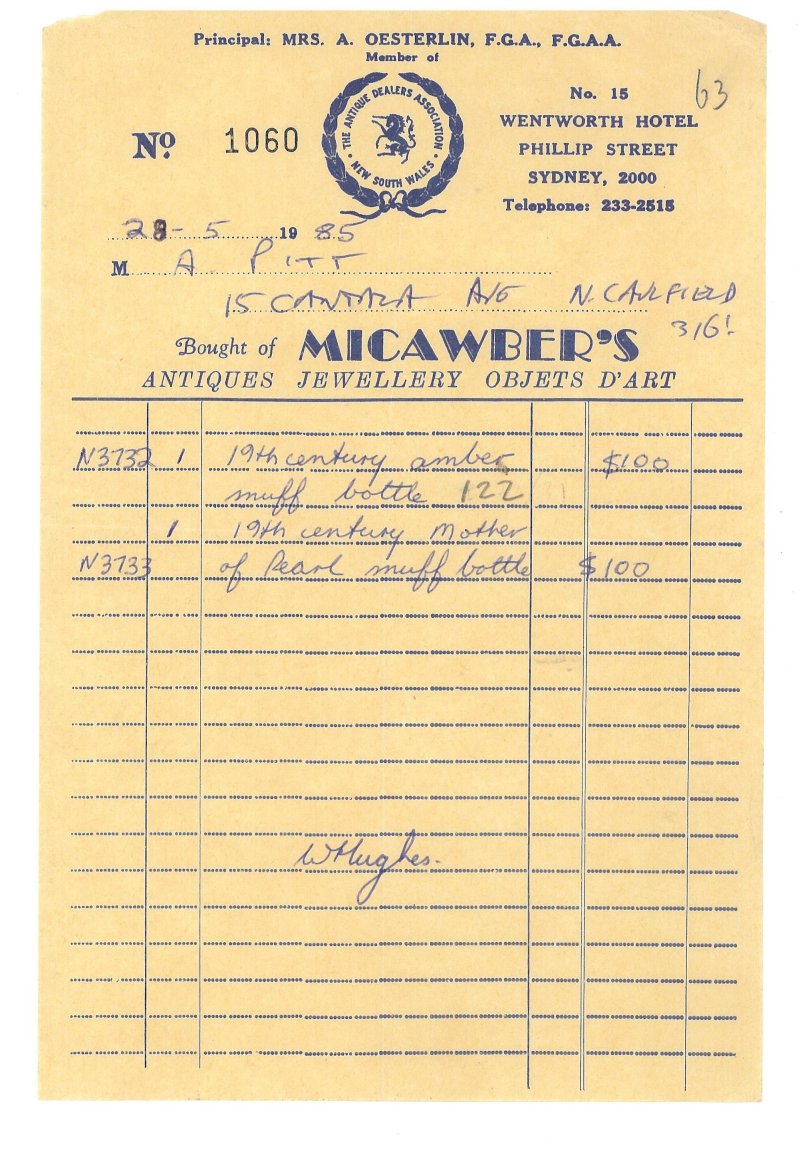 Principal: MRS. A. OESTERLIN, F.G.A., F.G.A.A.
Member of
THE ANTIQUE DEALERS ASSOCIATION
• NEW SOUTH WALES •
63
No. 15
WENTWORTH HOTEL
PHILLIP STREET
SYDNEY, 2000
Telephone: 233-2515
Nº 1060
28-5 1985
M A. PITT
15 CANTALA AVE N. CAULFIELD
3161
Bought of MICAWBER'S
ANTIQUES JEWELLERY OBJETS D'ART
N3732 1 19th century amber $100
snuff bottle 122
1 19th century Mother
N3733 of Pearl snuff bottle $100
WHughes.